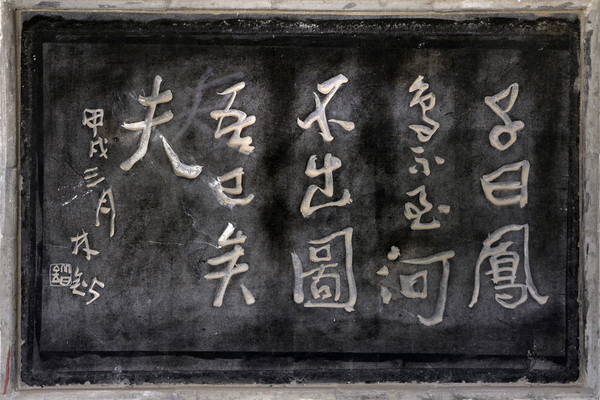 子曰鳳
鳥不至河
不出圖
吾已矣
夫
甲戌三月
林